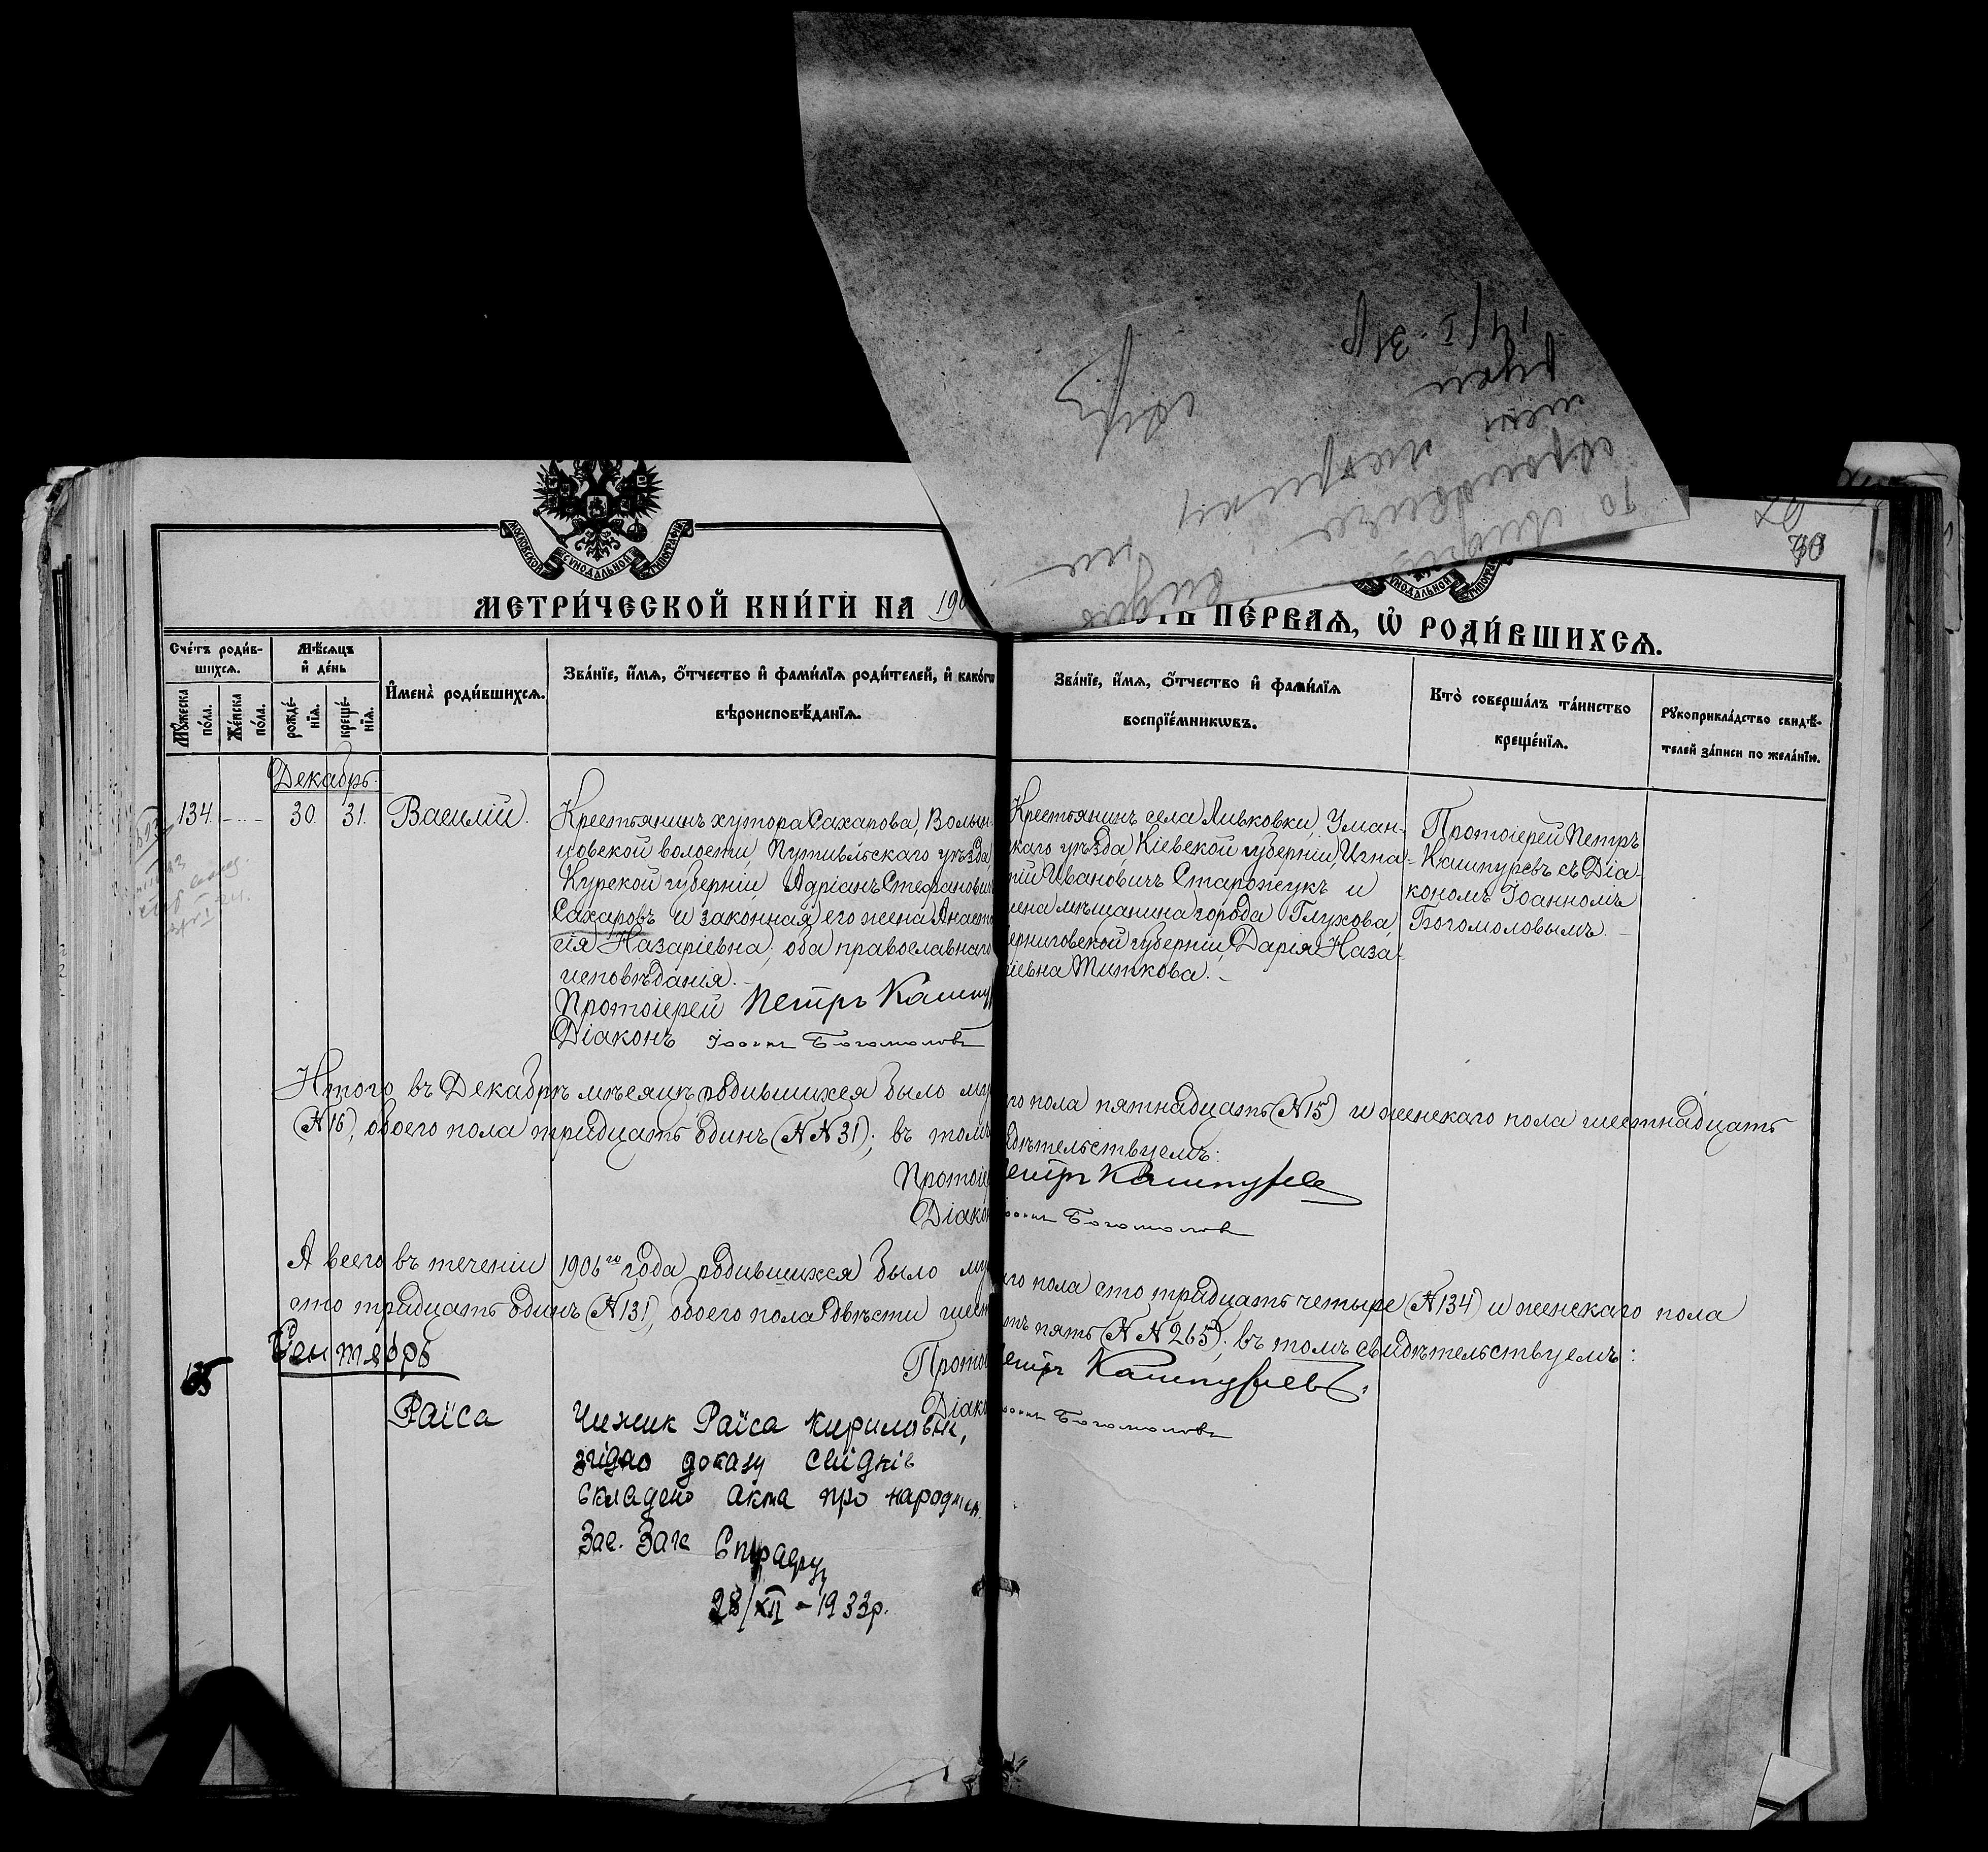 МОСКОВСКОЙ СѴНОДАЛЬНОЙ ТИПОГРАФІИ
30
МЕТРИ́ЧЕСКОЙ КНИ́ГИ НА 190
ПЕ́РВАЯ, Ѡ҆ РОДИ́ВШИХСЯ.
Сче́тъ роди́в-
шихся.
Мѣ́сяцъ
и҆ де́нь
И҆мена̀ роди́вшихся.
Зва́нїе, и҆́мя, ѻ҆́тчество и҆ фами́лїя роди́телей, и҆ како́гѡ
вѣроисповѣ́данїя.
Зва́нїе, и҆́мя, ѻ҆́тчество и҆ фами́лїя
воспрїе́мникѡвъ.
Кто̀ соверша́лъ та́инство
креще́нїя.
Рꙋкоприкла́дство свидѣ́-
телей за́писи по жела́нїю.
Мꙋ́жеска
по́ла.
Же́нска
по́ла.
рожде́-
нїя.
креще́-
нїя.
Декабрь.
134. -..- 30. 31. Василій.
Крестьянинъ хутора Сахарова, Волын-
цовской волости, Путивльскаго уѣзда
Курской губерніи Адріанъ Стефанович
Сахаровъ и законная его жена Анаста
сія Назаріевна; оба православнаго
исповѣданія.
Протоіерей Петръ Кашпу
Діаконъ Іоаннъ Богомоловъ
Крестьянинъ села Ливковки, Уман-
скаго уѣзда, Кіевской губерніи, Игна-
тій Ивановичъ Старожукъ и
жена мѣщанина города Глухова,
Черниговской губерніи Дарія Наза-
ріевна Титкова.
Протоіерей Петръ
Кашпуревъ съ Діа-
кономъ Іоанномъ
Богомоловымъ.
Итого въ Декабрѣ мѣсяцѣ родившихся было му го пола пятнадцать (№15) и женскаго пола шестнадцать
(№16), обоего пола тридцать одинъ (№№31); въ томъ свидѣтельствуемъ:
Протоіе Петръ Кашпурев
Діакон Іоаннъ Богомолов
А всего въ теченіи 1906го года родившихся было му го пола сто тридцать четыре (№134) и женскаго пола
сто тридцать одинъ (№131), обоего пола двѣсти шест тъ пять (№№265); въ томъ свидѣтельствуемъ:
Протоі Петръ Кашпуревъ
Діако Іоаннъ Богомоловъ
Сентябрь
135
Раїса
Чижик Раїса Кирилівна,
згідно доказу свідків
складено акта про народжен.
Зав. Загс
28/XII – 1933р.
14/I - 31р